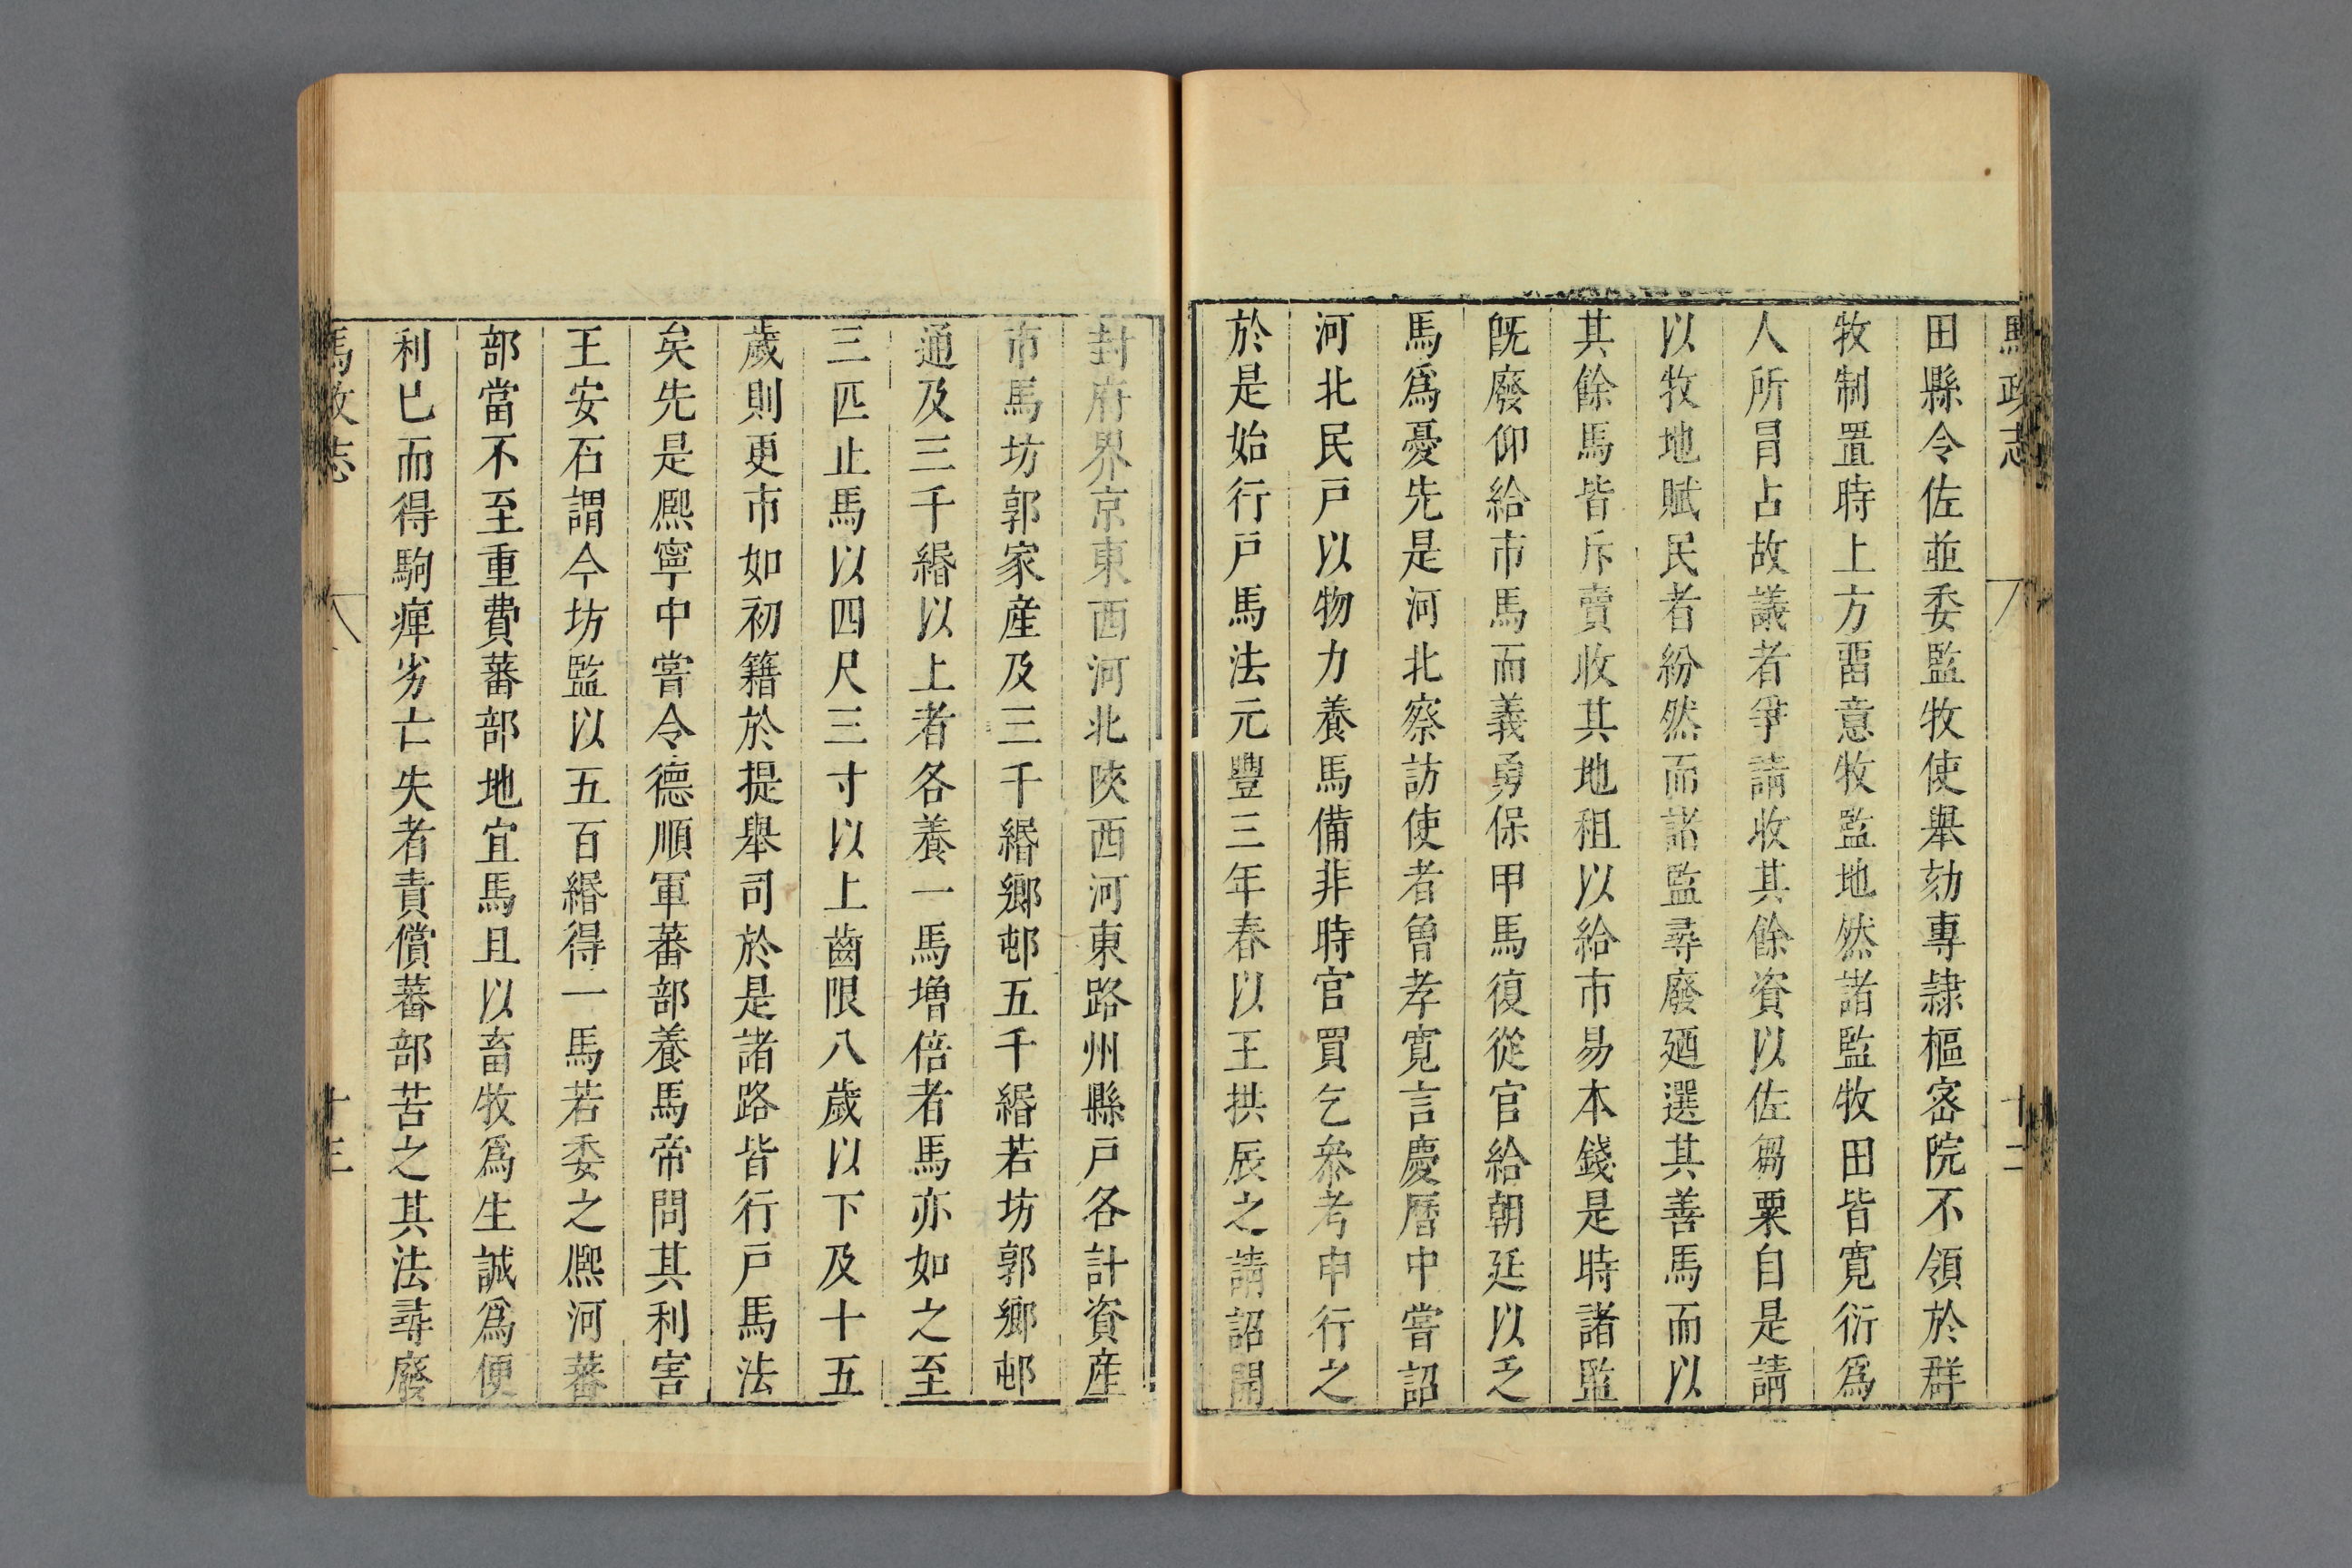 馬政志 十二
田縣令佐並委監牧使舉劾專隷樞宻院不領於群
牧制置時上方畱意牧監地然諸監牧田皆寛衍爲
人所冐占故議者爭請收其餘資以佐芻粟自是請
以牧地賦民者紛然而諸監尋廢廼選其善馬而以
其餘馬皆斥賣收其地租以給市易本錢是時諸監
旣廢仰給市馬而義勇保甲馬復從官給朝廷以乏
馬爲憂先是河北察訪使者曾孝寛言慶曆中嘗詔
河北民戸以物力養馬備非時官買乞叅考申行之
於是始行戸馬法元豐三年春以王拱辰之請詔開
封府界京東西河北陜西河東路州縣戸各計資産
市馬坊郭家産及三千緡鄉邨五千緡若坊郭鄉邨
通及三千緡以上者各養一馬増倍者馬亦如之至
三匹止馬以四尺三寸以上齒限八歲以下及十五
歲則更市如初籍於提舉司於是諸路皆行戸馬法
矣先是熈寧中嘗令德順軍蕃部養馬帝問其利害
王安石謂今坊監以五百緡得一馬若委之熈河蕃
部當不至重費蕃部地宜馬且以畜牧爲生誠爲便
利已而得駒痺劣亡失者責償蕃部苦之其法尋廢
馬政志 十三